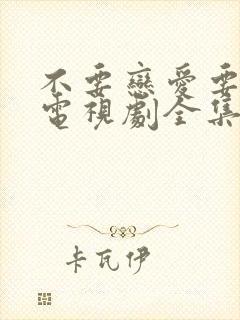 不要戀愛要
電視劇全集
卡瓦伊